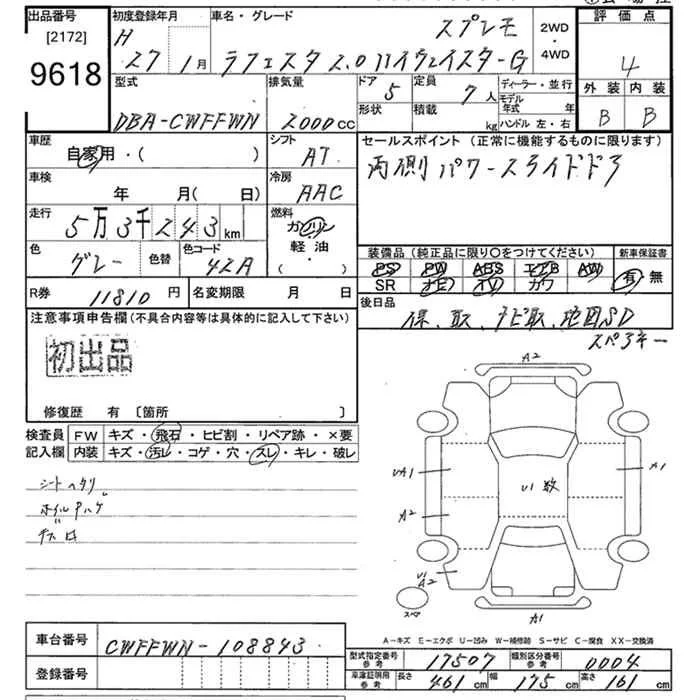 出品番号 [2172] 9618
初度登録年月 H 27 1月
車名・グレード スプレモ
ラフェスタ 2.0ハイウェイスターG
2WD・4WD
評価点 4
外装 B 内装 B
型式 DBA-CWFFWN
排気量 2000cc
ドア 5 形状
定員 7人 積載 kg
ディーラー・並行
モデル年式 年
ハンドル 左・右
車歴 自家用・( )
シフト AT
車検 年 月( 日)
冷房 AAC
走行 5万3千243km
燃料 ガソリン 軽油 ・( )
色 グレー 色替 色コード 42A
R券 11810円 名変期限 月 日
セールスポイント(正常に機能するものに限ります)
両側パワースライドドア
装備品(純正品に限り○をつけてください) 新車保証書
PS PW ABS エアB AW 有 無
SR ナビ TV カワ
後日品
保、取、ナビ取、地図SD
スペアキー
注意事項申告欄(不具合内容等は具体的に記入して下さい)
初出品
修復歴 有 〔箇所 〕
検査員記入欄
FW キズ・飛石・ヒビ割・リペア跡・×要
内装 キズ・汚レ・コゲ・穴・スレ・キレ・破レ
シートヘタリ
ホイルAハゲ
A2
UA1
A2
U1 数
A1
U1 A2
スペア
A1
A-キズ E-エクボ U-凹み W-補修跡 S-サビ C-腐食 XX-交換済
車台番号 CWFFWN-108843
登録番号
型式指定番号 参考 17507 類別区分番号 参考 0004
車庫証明用 参考 長さ 461cm 幅 175cm 高さ 161cm